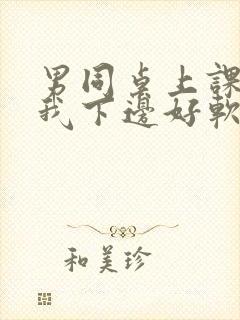 男同桌上課
我下邊好軟
和美珍